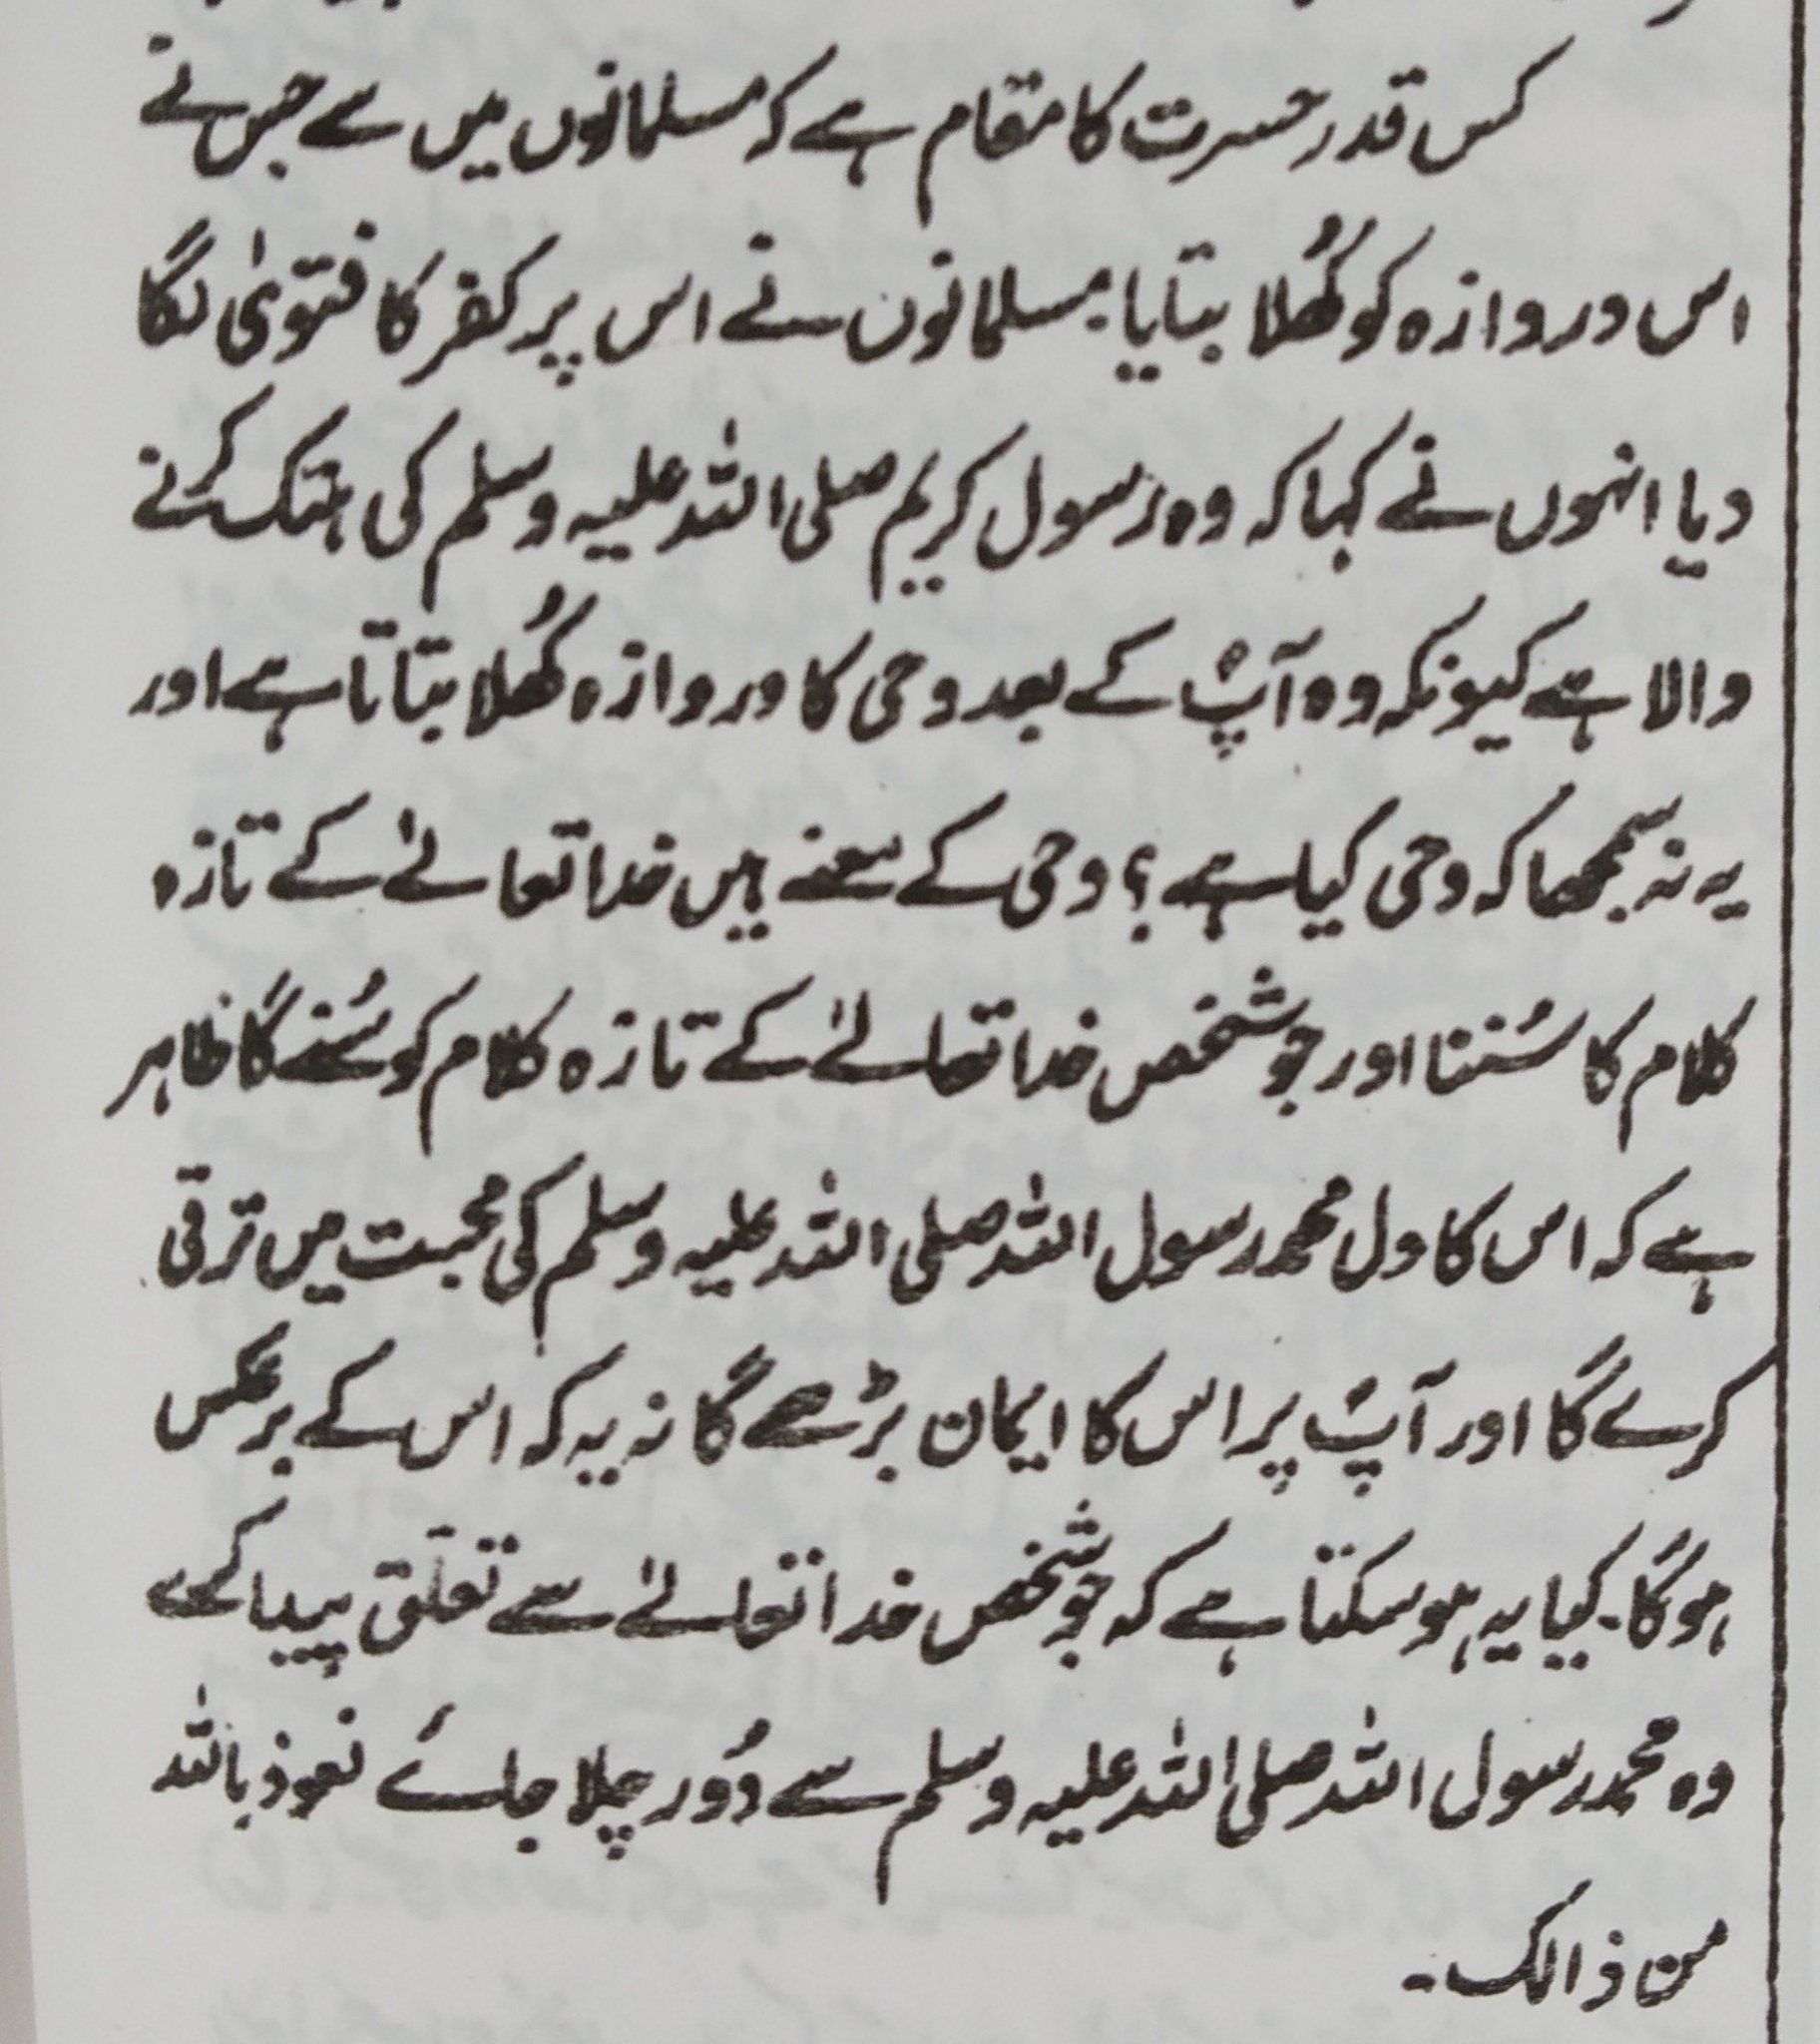 کس قدر حسرت کا مقام ہے کہ مسلمانوں میں سے جس نے
اس دروازہ کو کھُلا بتایا۔ مسلمانوں نے اس پر کفر کا فتویٰ لگا
دیا انہوں نے کہا کہ وہ رسول کریم صلی اللہ علیہ وسلم کی ہتک کرنے
والا ہے کیونکہ وہ آپؐ کے بعد وحی کا دروازہ کھُلا بتاتا ہے اور
یہ نہ سمجھا کہ وحی کیا ہے؟ وحی کے معنے ہیں خدا تعالےٰ کے تازہ
کلام کا سُننا اور جو شخص خدا تعالےٰ کے تازہ کلام کو سُنے گا ظاہر
ہے کہ اس کا دل محمد رسول اللہ صلی اللہ علیہ وسلم کی محبت میں ترقی
کرے گا اور آپؐ پر اس کا ایمان بڑھے گا نہ یہ کہ اس کے برعکس
ہوگا۔ کیا یہ ہو سکتا ہے کہ جو شخص خدا تعالےٰ سے تعلّق پیدا کرے
وہ محمد رسول اللہ صلی اللہ علیہ وسلم سے دُور چلا جائے نعوذ باللہ
من ذالک۔